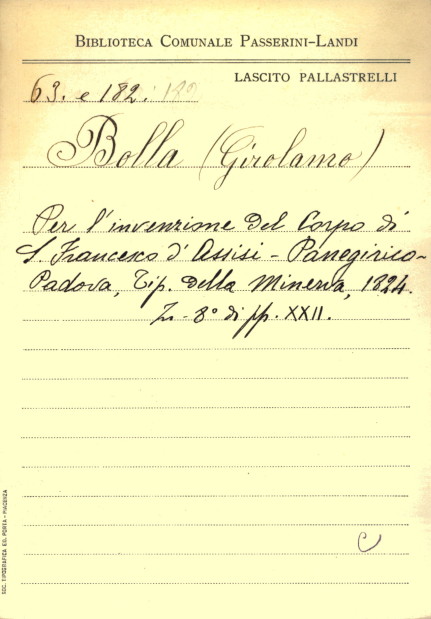 BIBLIOTECA COMUNALE PASSERINI-LANDI
LASCITO PALLASTRELLI
63. e 182.
Bolla (Girolamo)
Per l'invenzione del Corpo di
S. Francesco d'Assisi - Panegirico -
Padova, Tip. della Minerva, 1824.
In-8° di pp. XXII.
C
SOC. TIPOGRAFICA ED. PORTA - PIACENZA